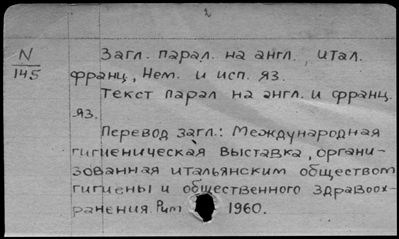 2
N
145
Загл. парал. на англ., итал.
франц, Нем. и исп. яз.
Текст парал на англ. и франц.
яз.
Перевод загл.: Международная
гигиеническая выставка, органи-
зованная итальянским обществом
гигиены и общественного здравоох-
ранения. Рим 1960.